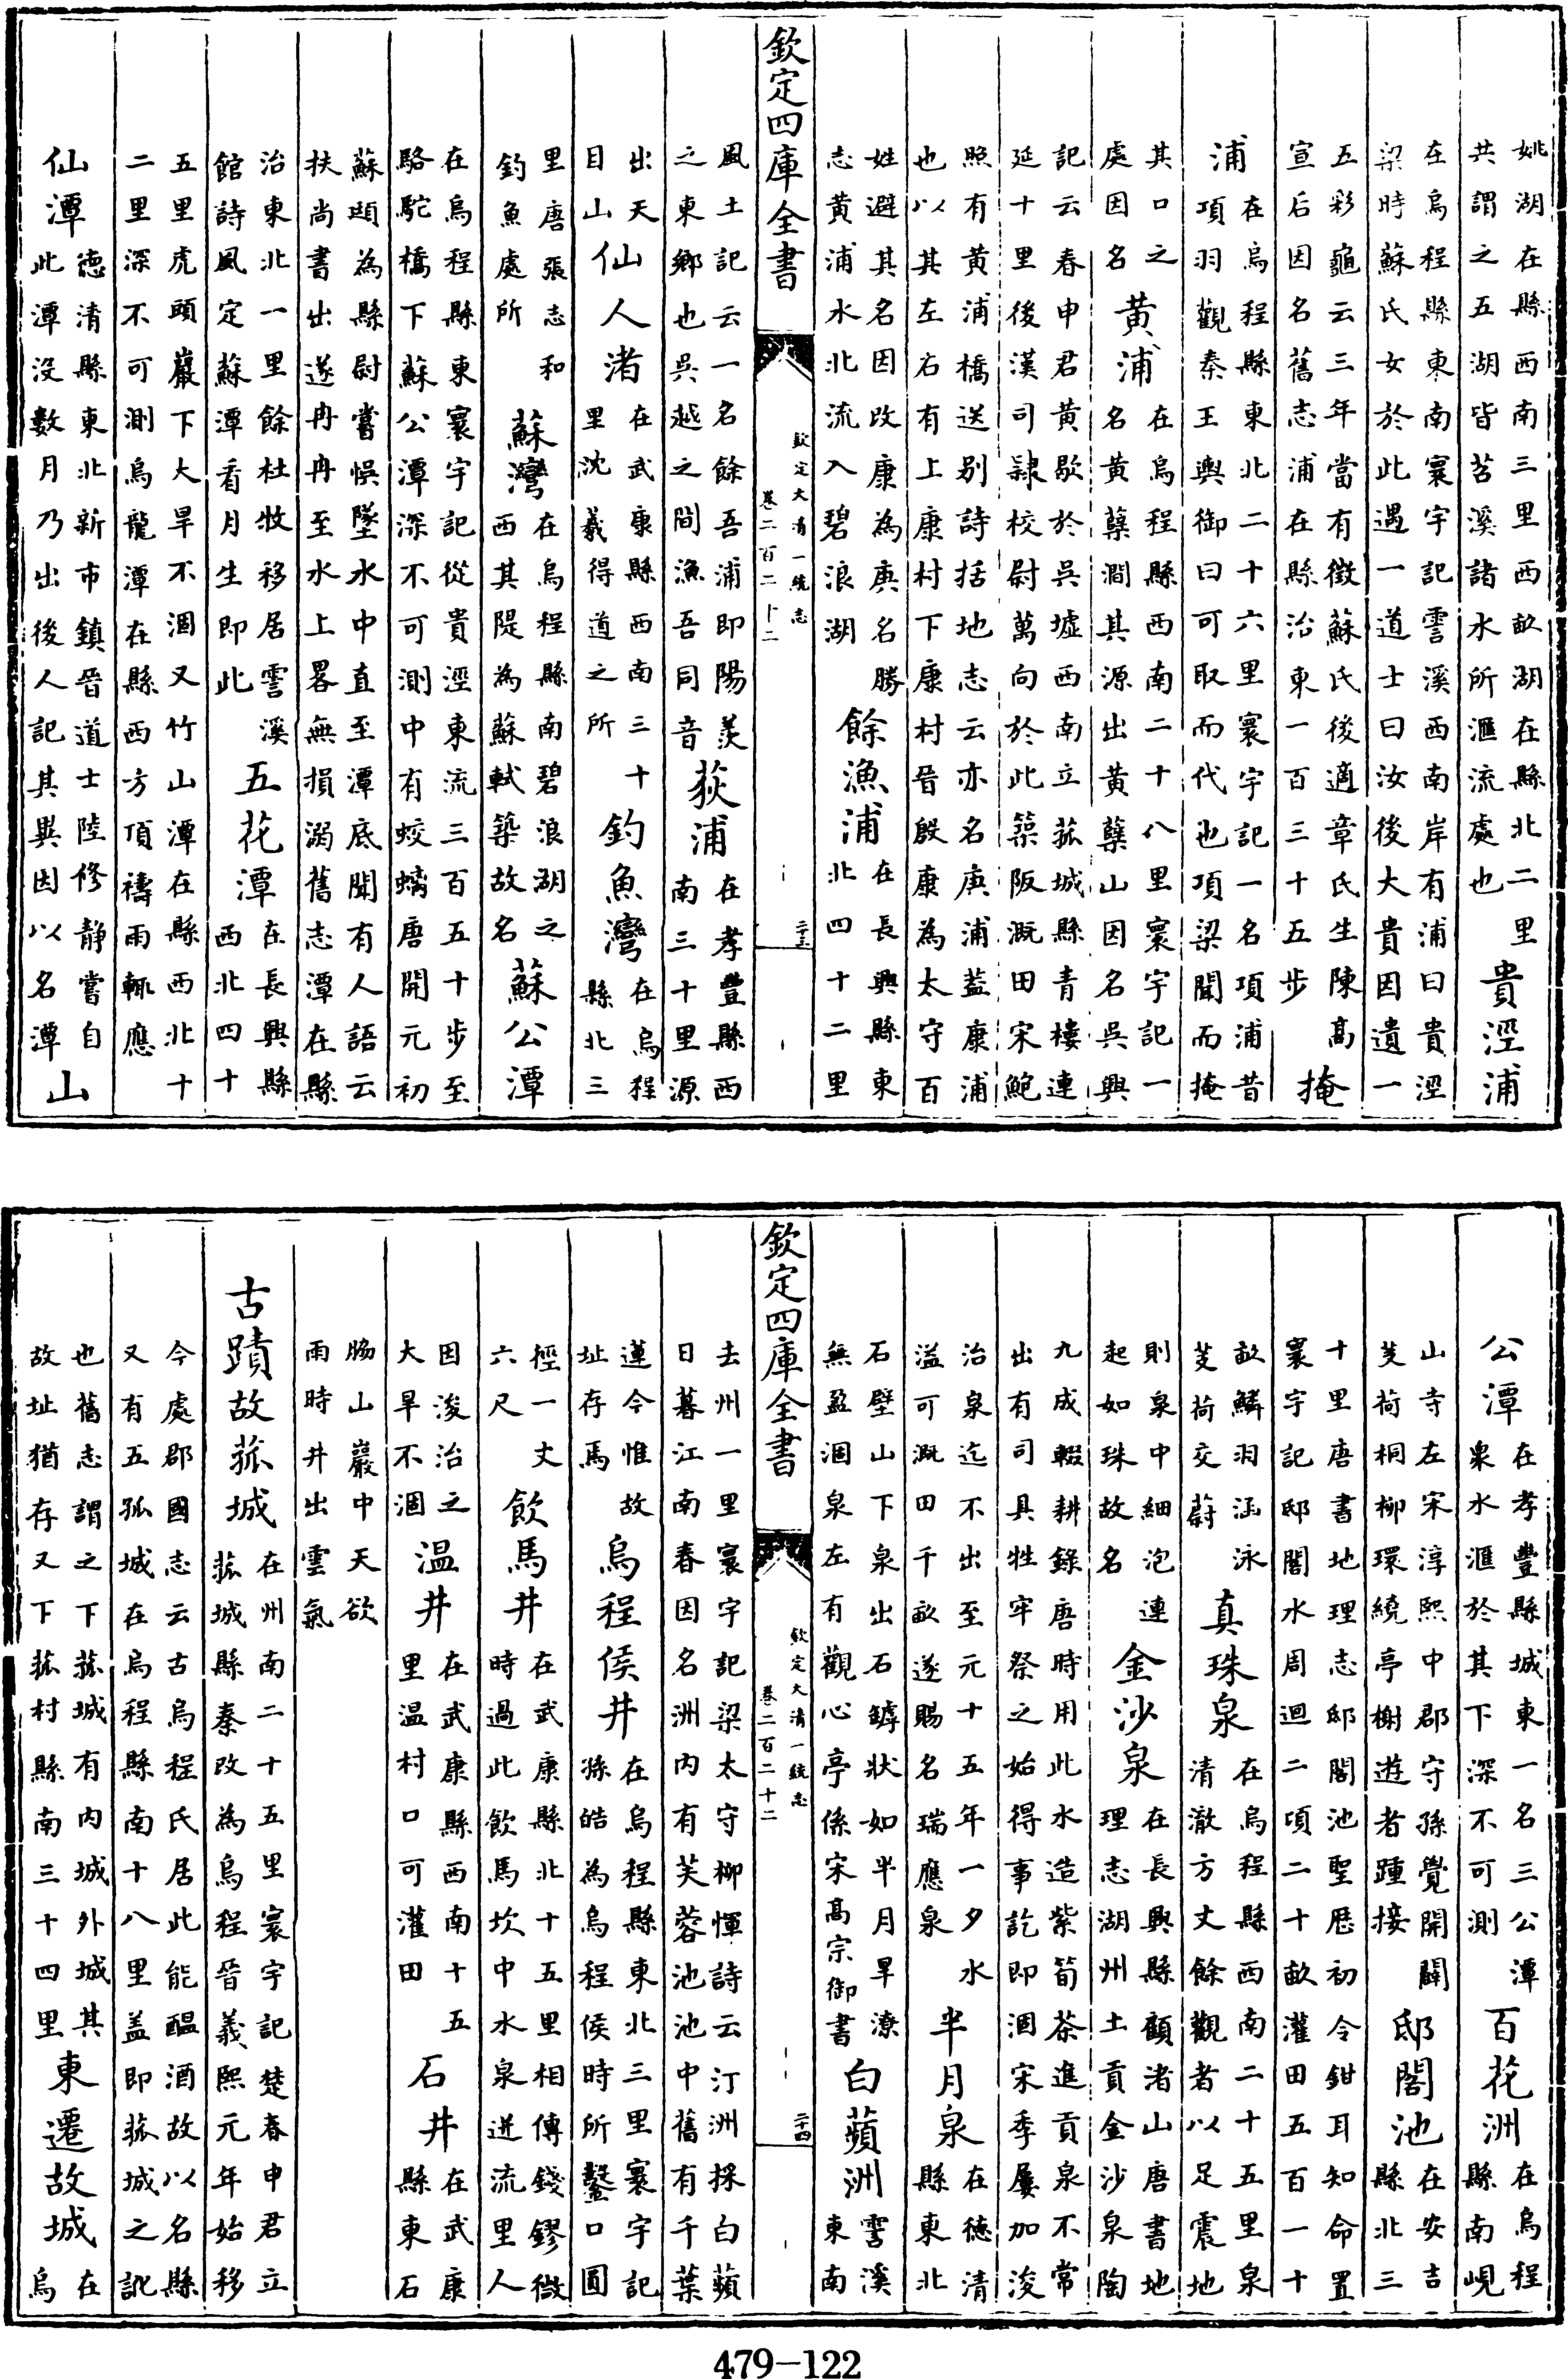 姚湖在縣西南三里西畝湖在縣北二里
共謂之五湖皆苕溪諸水所滙流處也
貴涇浦
在烏程縣東南寰宇記霅溪西南岸有浦曰貴涇
梁時蘇氏女於此遇一道士曰汝後大貴因遺一
五彩龜云三年當有徵蘇氏後適章氏生陳髙
宣后因名舊志浦在縣治東一百三十五步
掩
浦
在烏程縣東北二十六里寰宇記一名項浦昔
項羽觀秦王輿御曰可取而代也項梁聞而掩
其口之
處因名
黄浦
在烏程縣西南二十八里寰宇記一
名黄蘗澗其源出黄蘗山因名吳興
記云春申君黄歇於吳墟西南立菰城縣青樓連
延十里後漢司隸校尉萬向於此築阪溉田宋鮑
照有黄浦橋送别詩括地志云亦名庚浦蓋康浦
也以其左右有上康村下康村晉殷康為太守百
姓避其名因改康為庚名勝
志黄浦水北流入碧浪湖
餘漁浦
在長興縣東
北四十二里
欽定四庫全書
欽定大清一統志
卷二百二十二
二十三
風土記云一名餘吾浦即陽羨
之東鄉也吳越之間漁吾同音
荻浦
在孝豐縣西
南三十里源
出天
目山
仙人渚
在武康縣西南三十
里沈羲得道之所
釣魚灣
在烏程
縣北三
里唐張志和
釣魚處所
蘇灣
在烏程縣南碧浪湖之
西其隄為蘇軾築故名
蘇公潭
在烏程縣東寰宇記從貴涇東流三百五十步至
駱駝橋下蘇公潭深不可測中有蛟螭唐開元初
蘇頲為縣尉嘗悞墜水中直至潭底聞有人語云
扶尚書出遂冉冉至水上畧無損溺舊志潭在縣
治東北一里餘杜牧移居霅溪
館詩風定蘇潭看月生即此
五花潭
在長興縣
西北四十
五里虎頭巖下大旱不涸又竹山潭在縣西北十
二里深不可測烏龍潭在縣西方頂禱雨輒應
仙潭
德清縣東北新市鎮晉道士陸修静嘗自
此潭沒數月乃出後人記其異因以名潭
山
公潭
在孝豐縣城東一名三公潭
衆水滙於其下深不可測
百花洲
在烏程
縣南峴
山寺左宋淳熙中郡守孫覺開闢
芰荷桐柳環繞亭榭遊者踵接
邸閣池
在安吉
縣北三
十里唐書地理志邸閣池聖厯初令鉗耳知命置
寰宇記邸閣水周迴二項二十畝灌田五百一十
畝鱗羽涵泳
芰荷交蔚
真珠泉
在烏程縣西南二十五里泉
清澈方丈餘觀者以足震地
則泉中細泡連
起如珠故名
金沙泉
在長興縣顧渚山唐書地
理志湖州土貢金沙泉陶
九成輟耕錄唐時用此水造紫筍茶進貢泉不常
出有司具牲牢祭之始得事訖即涸宋季屢加浚
治泉迄不出至元十五年一夕水
溢可溉田千畝遂賜名瑞應泉
半月泉
在德清
縣東北
石壁山下泉出石罅狀如半月旱潦
無盈涸泉左有觀心亭係宋髙宗御書
白蘋洲
霅溪
東南
欽定四庫全書
欽定大清一統志
卷二百二十二
二十四
去州一里寰宇記梁太守柳惲詩云汀洲採白蘋
日暮江南春因名洲内有芙蓉池池中舊有千葉
蓮今惟故
址存焉
烏程侯井
在烏程縣東北三里寰宇記
孫皓為烏程侯時所鑿口圓
徑一丈
六尺
飲馬井
在武康縣北十五里相傳錢鏐微
時過此飲馬坎中水泉迸流里人
因浚治之
大旱不涸
温井
在武康縣西南十五
里温村口可灌田
石井
在武康
縣東石
腸山巖中天欲
雨時井出雲氣
古蹟
故菰城
在州南二十五里寰宇記楚春申君立
菰城縣秦改為烏程晉義熙元年始移
今處郡國志云古烏程氏居此能醖酒故以名縣
又有五孤城在烏程縣南十八里盖即菰城之訛
也舊志謂之下菰城有内城外城其
故址猶存又下菰村縣南三十四里
東遷故城
在
烏
479-122